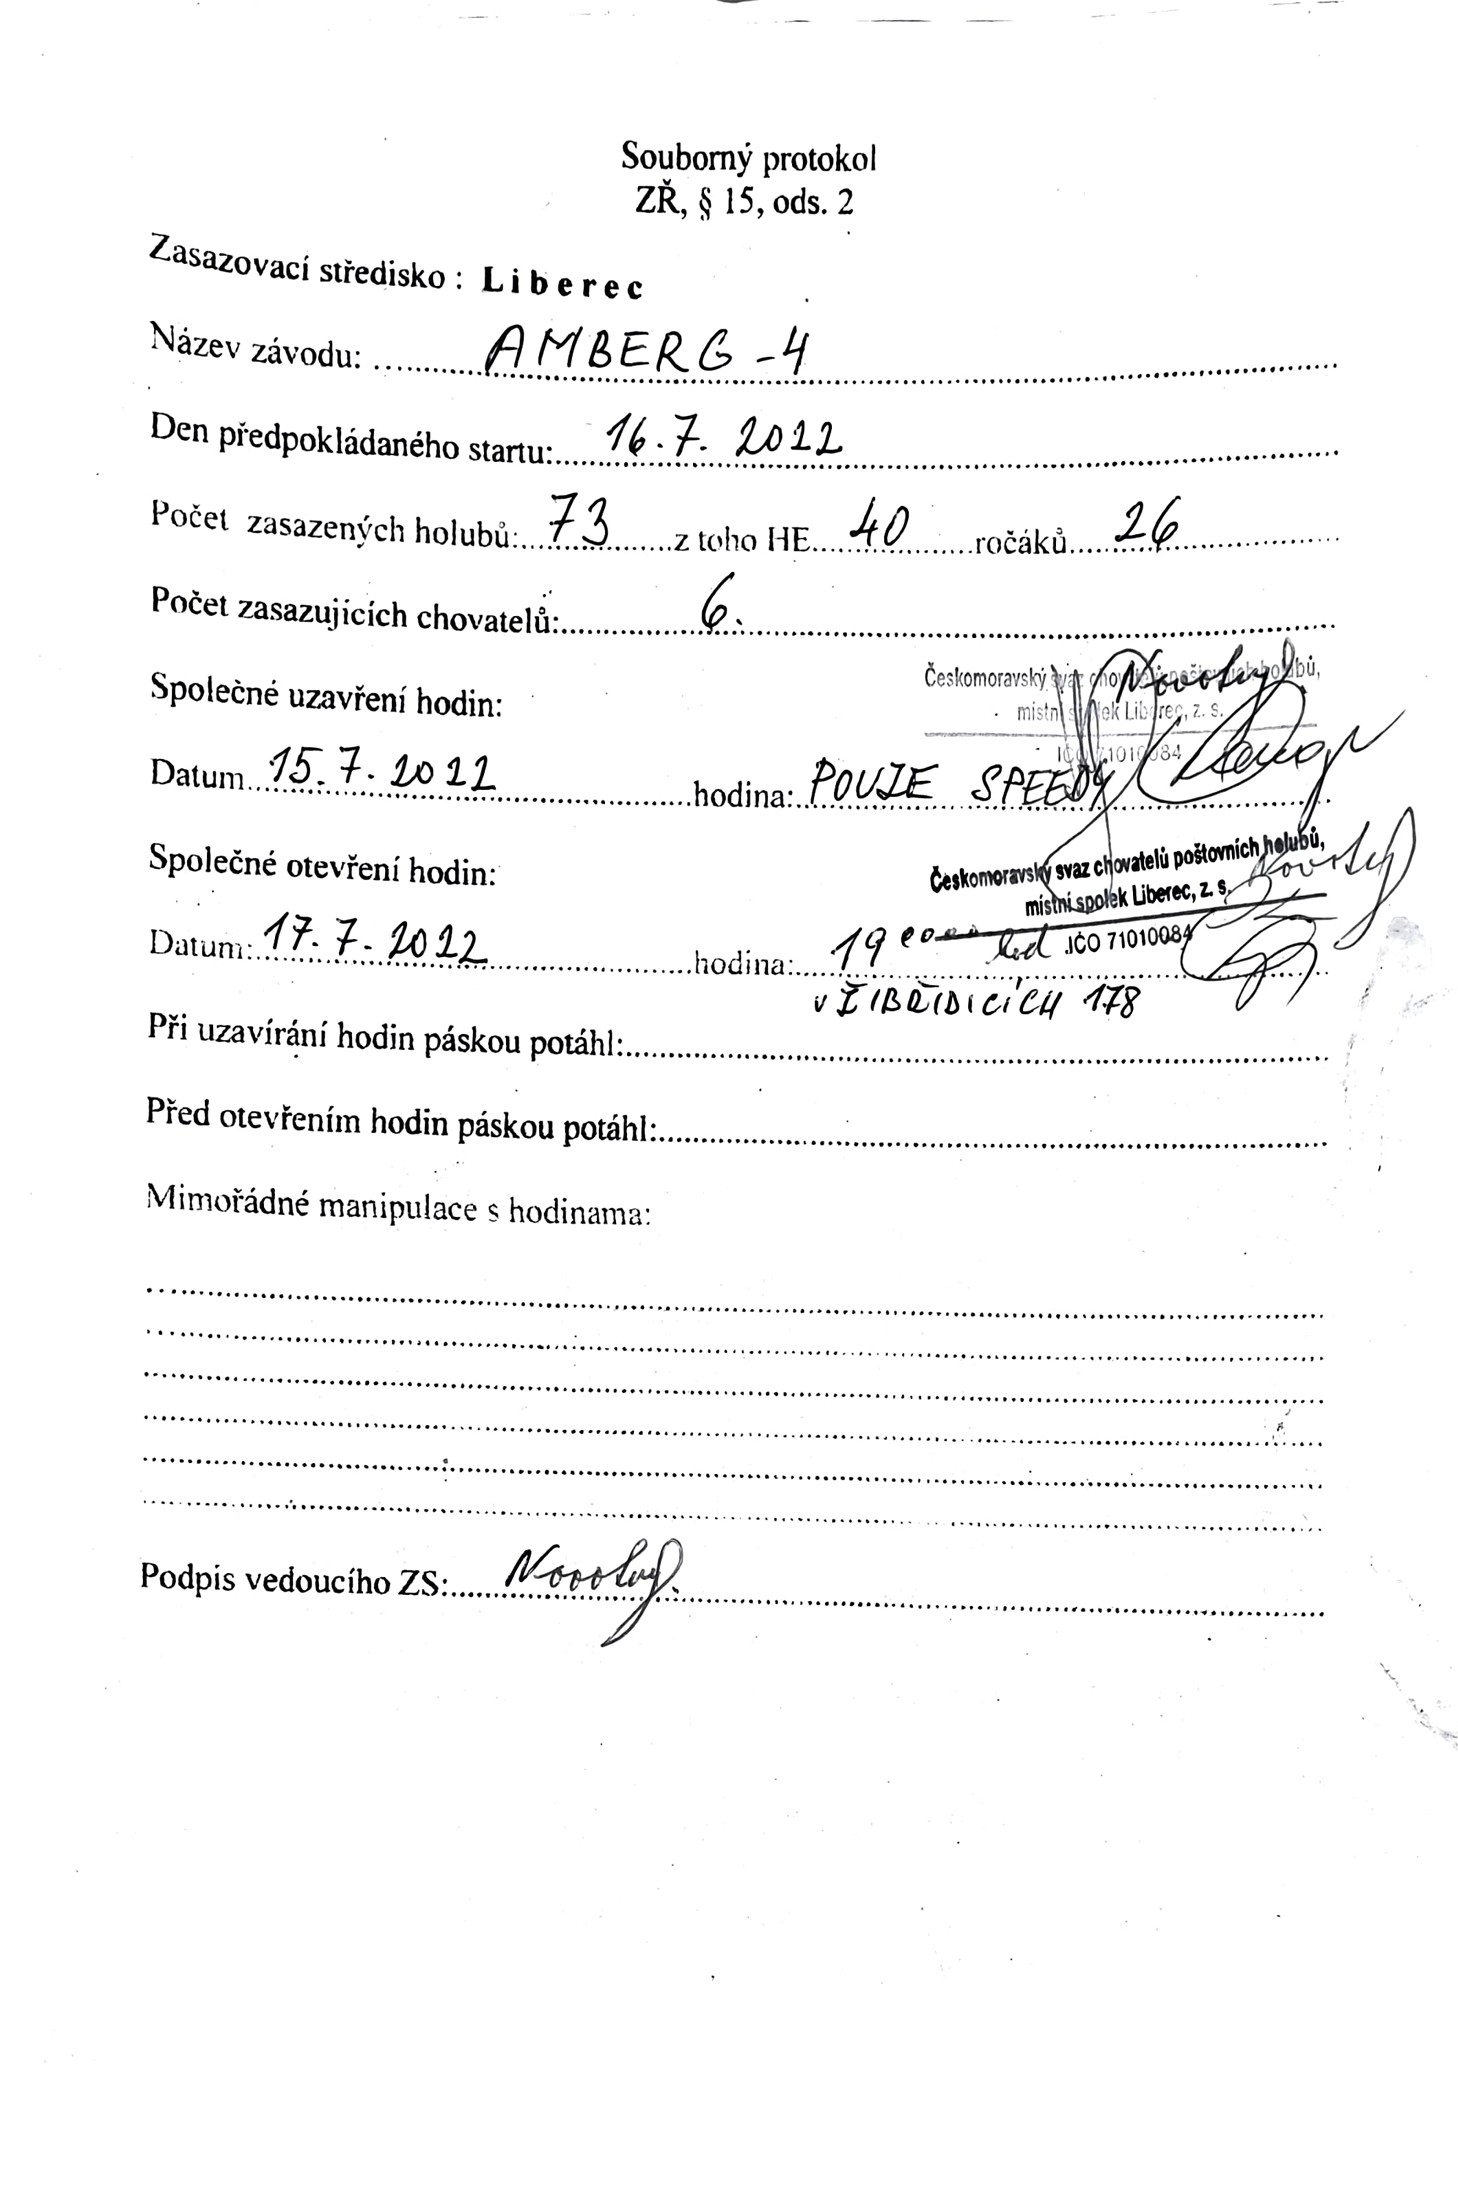 Souborný protokol
ZŘ, § 15, ods. 2
Zasazovací středisko : Liberec
Název závodu: AMBERG -4
Den předpokládaného startu: 16.7. 2022
Počet zasazených holubů: 73 z toho HE 40 ročáků 26
Počet zasazujících chovatelů: 6.
Českomoravský svaz chovatelů poštovních holubů,
Novotný
Společné uzavření hodin:
místní spolek Liberec, z. s.
IČO 71010084
Datum 15.7.2022 hodina: POUZE SPEEDY
Českomoravský svaz chovatelů poštovních holubů,
Společné otevření hodin:
místní spolek Liberec, z. s. Novotný
IČO 71010084
Datum: 17.7.2022 hodina: 19 hod
v ŽIBŘIDICÍCH 178
Při uzavírání hodin páskou potáhl:
Před otevřením hodin páskou potáhl:
Mimořádné manipulace s hodinama:
Podpis vedoucího ZS: Novotný